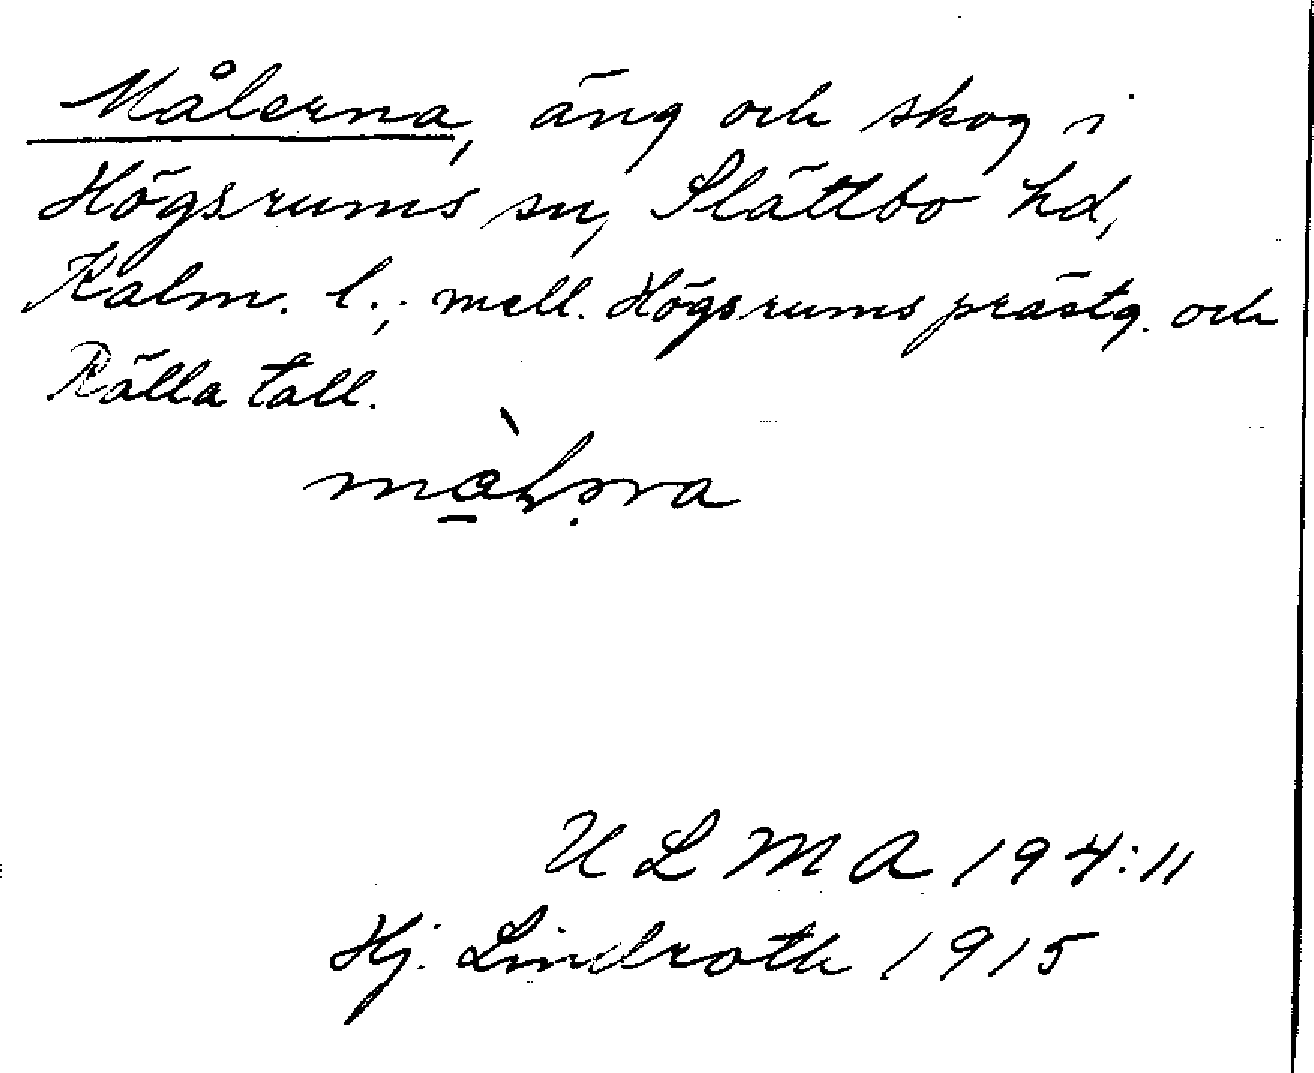 Målerna, äng och skog i
Högsrums sn, Slättbo hd,
Kalm. l.; mell. Högsrums prästg. och
Rälla tall.
ULMA 194:11
Hj. Lindroth 1915